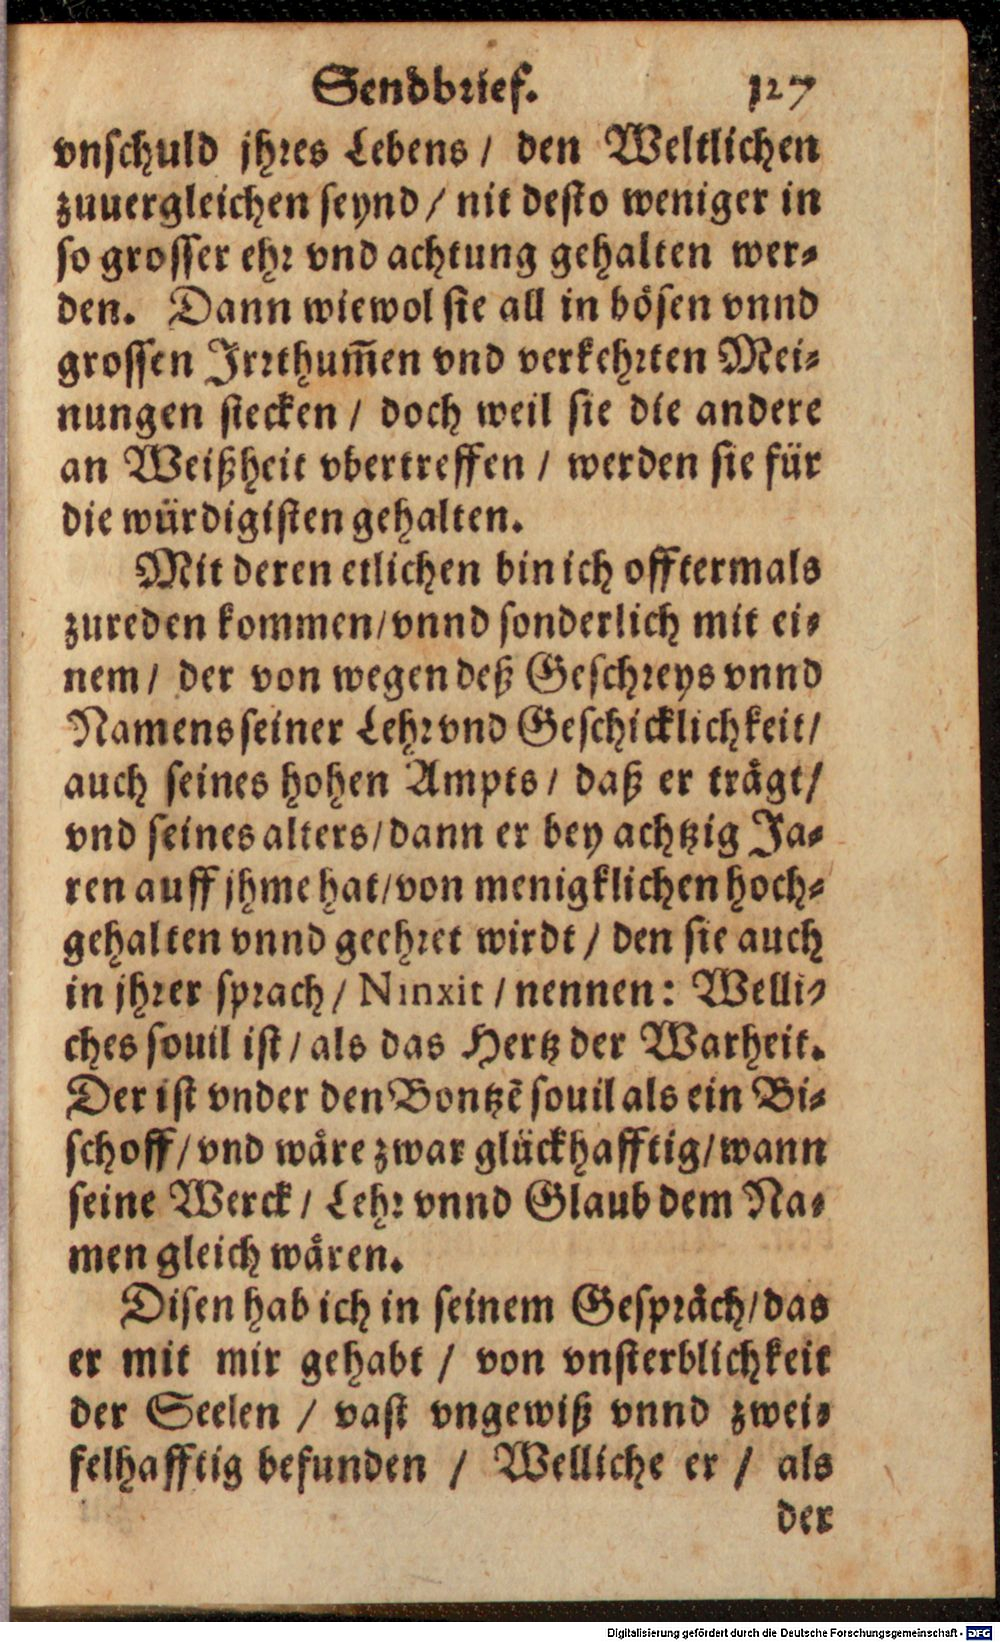 Sendbrief. 127
vnschuld jhres Lebens / den Weltlichen
zuuergleichen seynd / nit desto weniger in
so grosser ehr vnd achtung gehalten wer-
den. Dann wiewol sie all in bösen vnnd
grossen Irrthum̃en vnd verkehrten Mei-
nungen stecken / doch weil sie die andere
an Weißheit vbertreffen / werden sie für
die würdigisten gehalten.
Mit deren etlichen bin ich offtermals
zureden kommen / vnnd sonderlich mit ei-
nem / der von wegen deß Geschreys vnnd
Namens seiner Lehr vnd Geschicklichkeit /
auch seines hohen Ampts / daß er trägt /
vnd seines alters / dann er bey achtzig Ja-
ren auff jhme hat / von menigklichen hoch-
gehalten vnnd geehret wirdt / den sie auch
in jhrer sprach / Ninxit / nennen: Welli-
ches souil ist / als das Hertz der Warheit.
Der ist vnder den Bontzẽ souil als ein Bi-
schoff / vnd wäre zwar glückhafftig / wann
seine Werck / Lehr vnnd Glaub dem Na-
men gleich wären.
Disen hab ich in seinem Gespräch / das
er mit mir gehabt / von vnsterblichkeit
der Seelen / vast vngewiß vnnd zwei-
felhafftig befunden / Welliche er / als
der
Digitalisierung gefördert durch die Deutsche Forschungsgemeinschaft - DFG